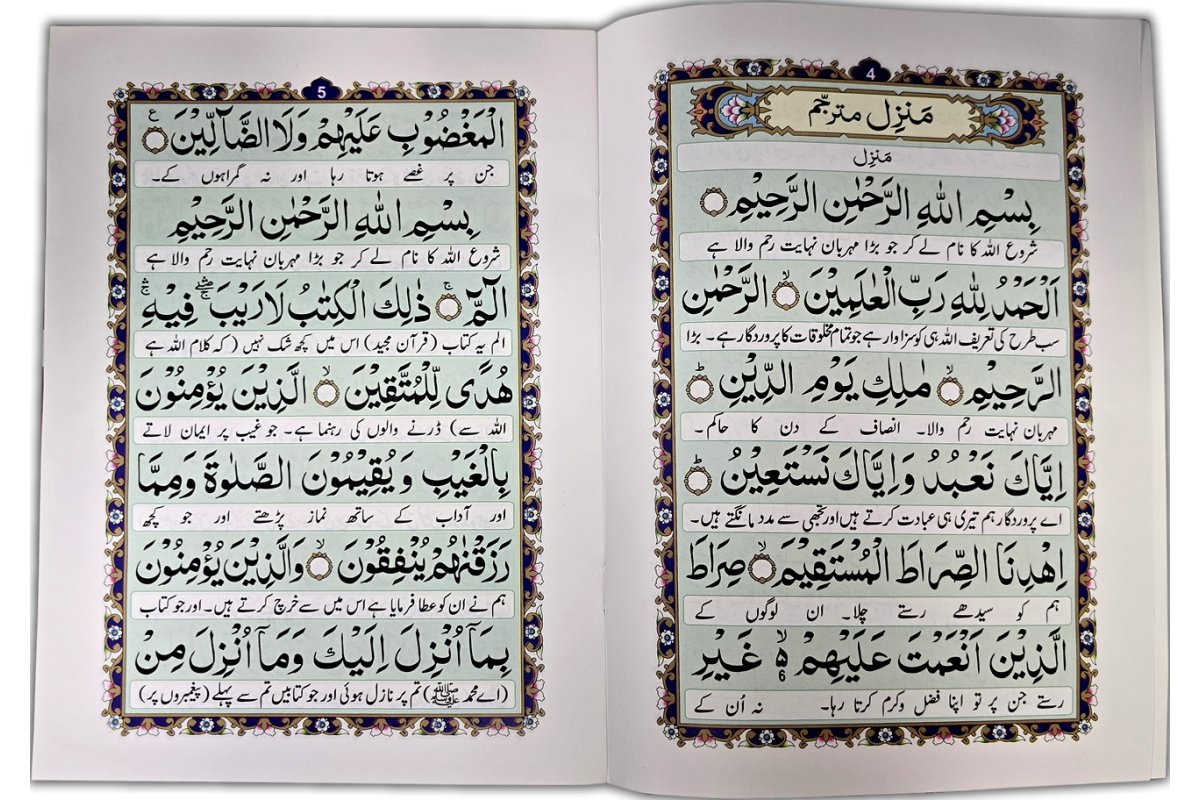 4
مَنزِل مترجّم
مَنزِل
بِسْمِ اللّٰهِ الرَّحْمٰنِ الرَّحِيْمِ
شروع اللہ کا نام لے کر جو بڑا مہربان نہایت رحم والا ہے
اَلْحَمْدُ لِلّٰهِ رَبِّ الْعٰلَمِيْنَ ۙ الرَّحْمٰنِ
سب طرح کی تعریف اللہ ہی کو سزاوار ہے جو تمام مخلوقات کا پروردگار ہے۔ بڑا
الرَّحِيْمِ ۙ مٰلِكِ يَوْمِ الدِّيْنِ ؕ
مہربان نہایت رحم والا۔ انصاف کے دن کا حاکم۔
اِيَّاكَ نَعْبُدُ وَاِيَّاكَ نَسْتَعِيْنُ ؕ
اے پروردگار ہم تیری ہی عبادت کرتے ہیں اور تجھی سے مدد مانگتے ہیں۔
اِهْدِنَا الصِّرَاطَ الْمُسْتَقِيْمَ ۙ صِرَاطَ
ہم کو سیدھے رستے چلا۔ ان لوگوں کے
الَّذِيْنَ اَنْعَمْتَ عَلَيْهِمْ ۙ ۵ 6 غَيْرِ
رستے جن پر تو اپنا فضل وکرم کرتا رہا۔ نہ اُن کے
5
الْمَغْضُوْبِ عَلَيْهِمْ وَلَا الضَّآلِّيْنَ ع
جن پر غصے ہوتا رہا اور نہ گمراہوں کے۔
بِسْمِ اللّٰهِ الرَّحْمٰنِ الرَّحِيْمِ
شروع اللہ کا نام لے کر جو بڑا مہربان نہایت رحم والا ہے
الٓمّٓ ۚ ذٰلِكَ الْكِتٰبُ لَا رَيْبَ ۛۖ فِيْهِ ۛ
الم یہ کتاب (قرآن مجید) اس میں کچھ شک نہیں (کہ کلام اللہ ہے
هُدًى لِّلْمُتَّقِيْنَ ۙ الَّذِيْنَ يُؤْمِنُوْنَ
اللہ سے) ڈرنے والوں کی رہنما ہے۔ جو غیب پر ایمان لاتے
بِالْغَيْبِ وَيُقِيْمُوْنَ الصَّلٰوةَ وَمِمَّا
اور آداب کے ساتھ نماز پڑھتے اور جو کچھ
رَزَقْنٰهُمْ يُنْفِقُوْنَ ۙ وَالَّذِيْنَ يُؤْمِنُوْنَ
ہم نے ان کو عطا فرمایا ہے اس میں سے خرچ کرتے ہیں۔ اور جو کتاب
بِمَآ اُنْزِلَ اِلَيْكَ وَمَآ اُنْزِلَ مِنْ
(اے محمد ﷺ) تم پر نازل ہوئی اور جو کتابیں تم سے پہلے (پیغمبروں پر)